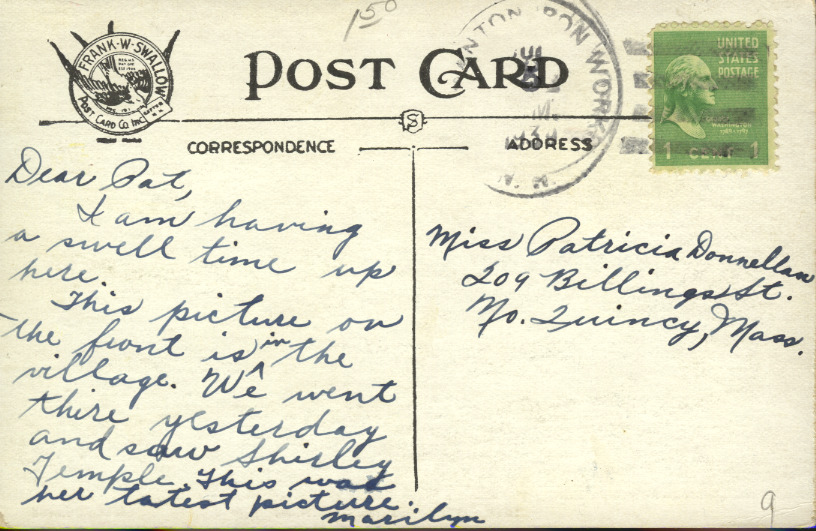 1 50
FRANK·W·SWALLOW
POST CARD CO. INC.
POST CARD
NTON IRON WORKS
UNITED
STATES
POSTAGE
WASHINGTON
1 CENT 1
S
CORRESPONDENCE
ADDRESS
Dear Pat,
I am having
a swell time up
here.
This picture on
the front is in the
village. We went
there yesterday
and saw Shirley
Temple. This was
her latest picture.
Marilyn
Miss Patricia Donnellan
209 Billings St.
No. Quincy, Mass.
9